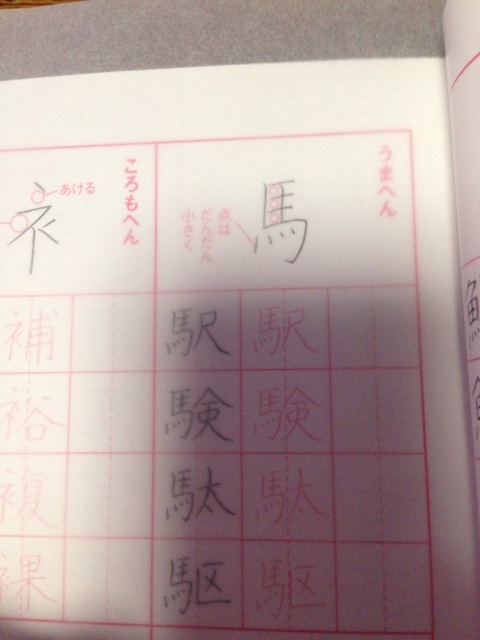 うまへん
馬
点は
だんだん
小さく
駅 駅
験 験
駄 駄
駆 駆
ころもへん
あける
衤
補
裕
複
裸